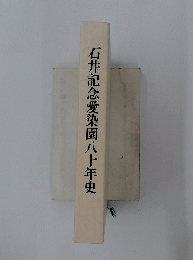 石井記念愛染園八十年史